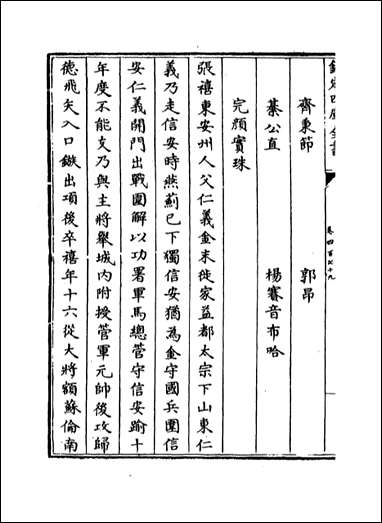 欽定四庫全書
卷四百七十九
齊秉節 郭昂
綦公直 楊賽音布哈
完顏實珠
張禧東安州人父仁義金末徙家益都太宗下山東仁
義乃走信安時燕薊已下獨信安猶為金守國兵圍信
安仁義開門出戰圍解以功署軍馬總管守信安踰十
年度不能支乃與主將舉城內附授管軍元帥後攻歸
德飛矢入口鏃出項後卒禧年十六從大將額蘇倫南